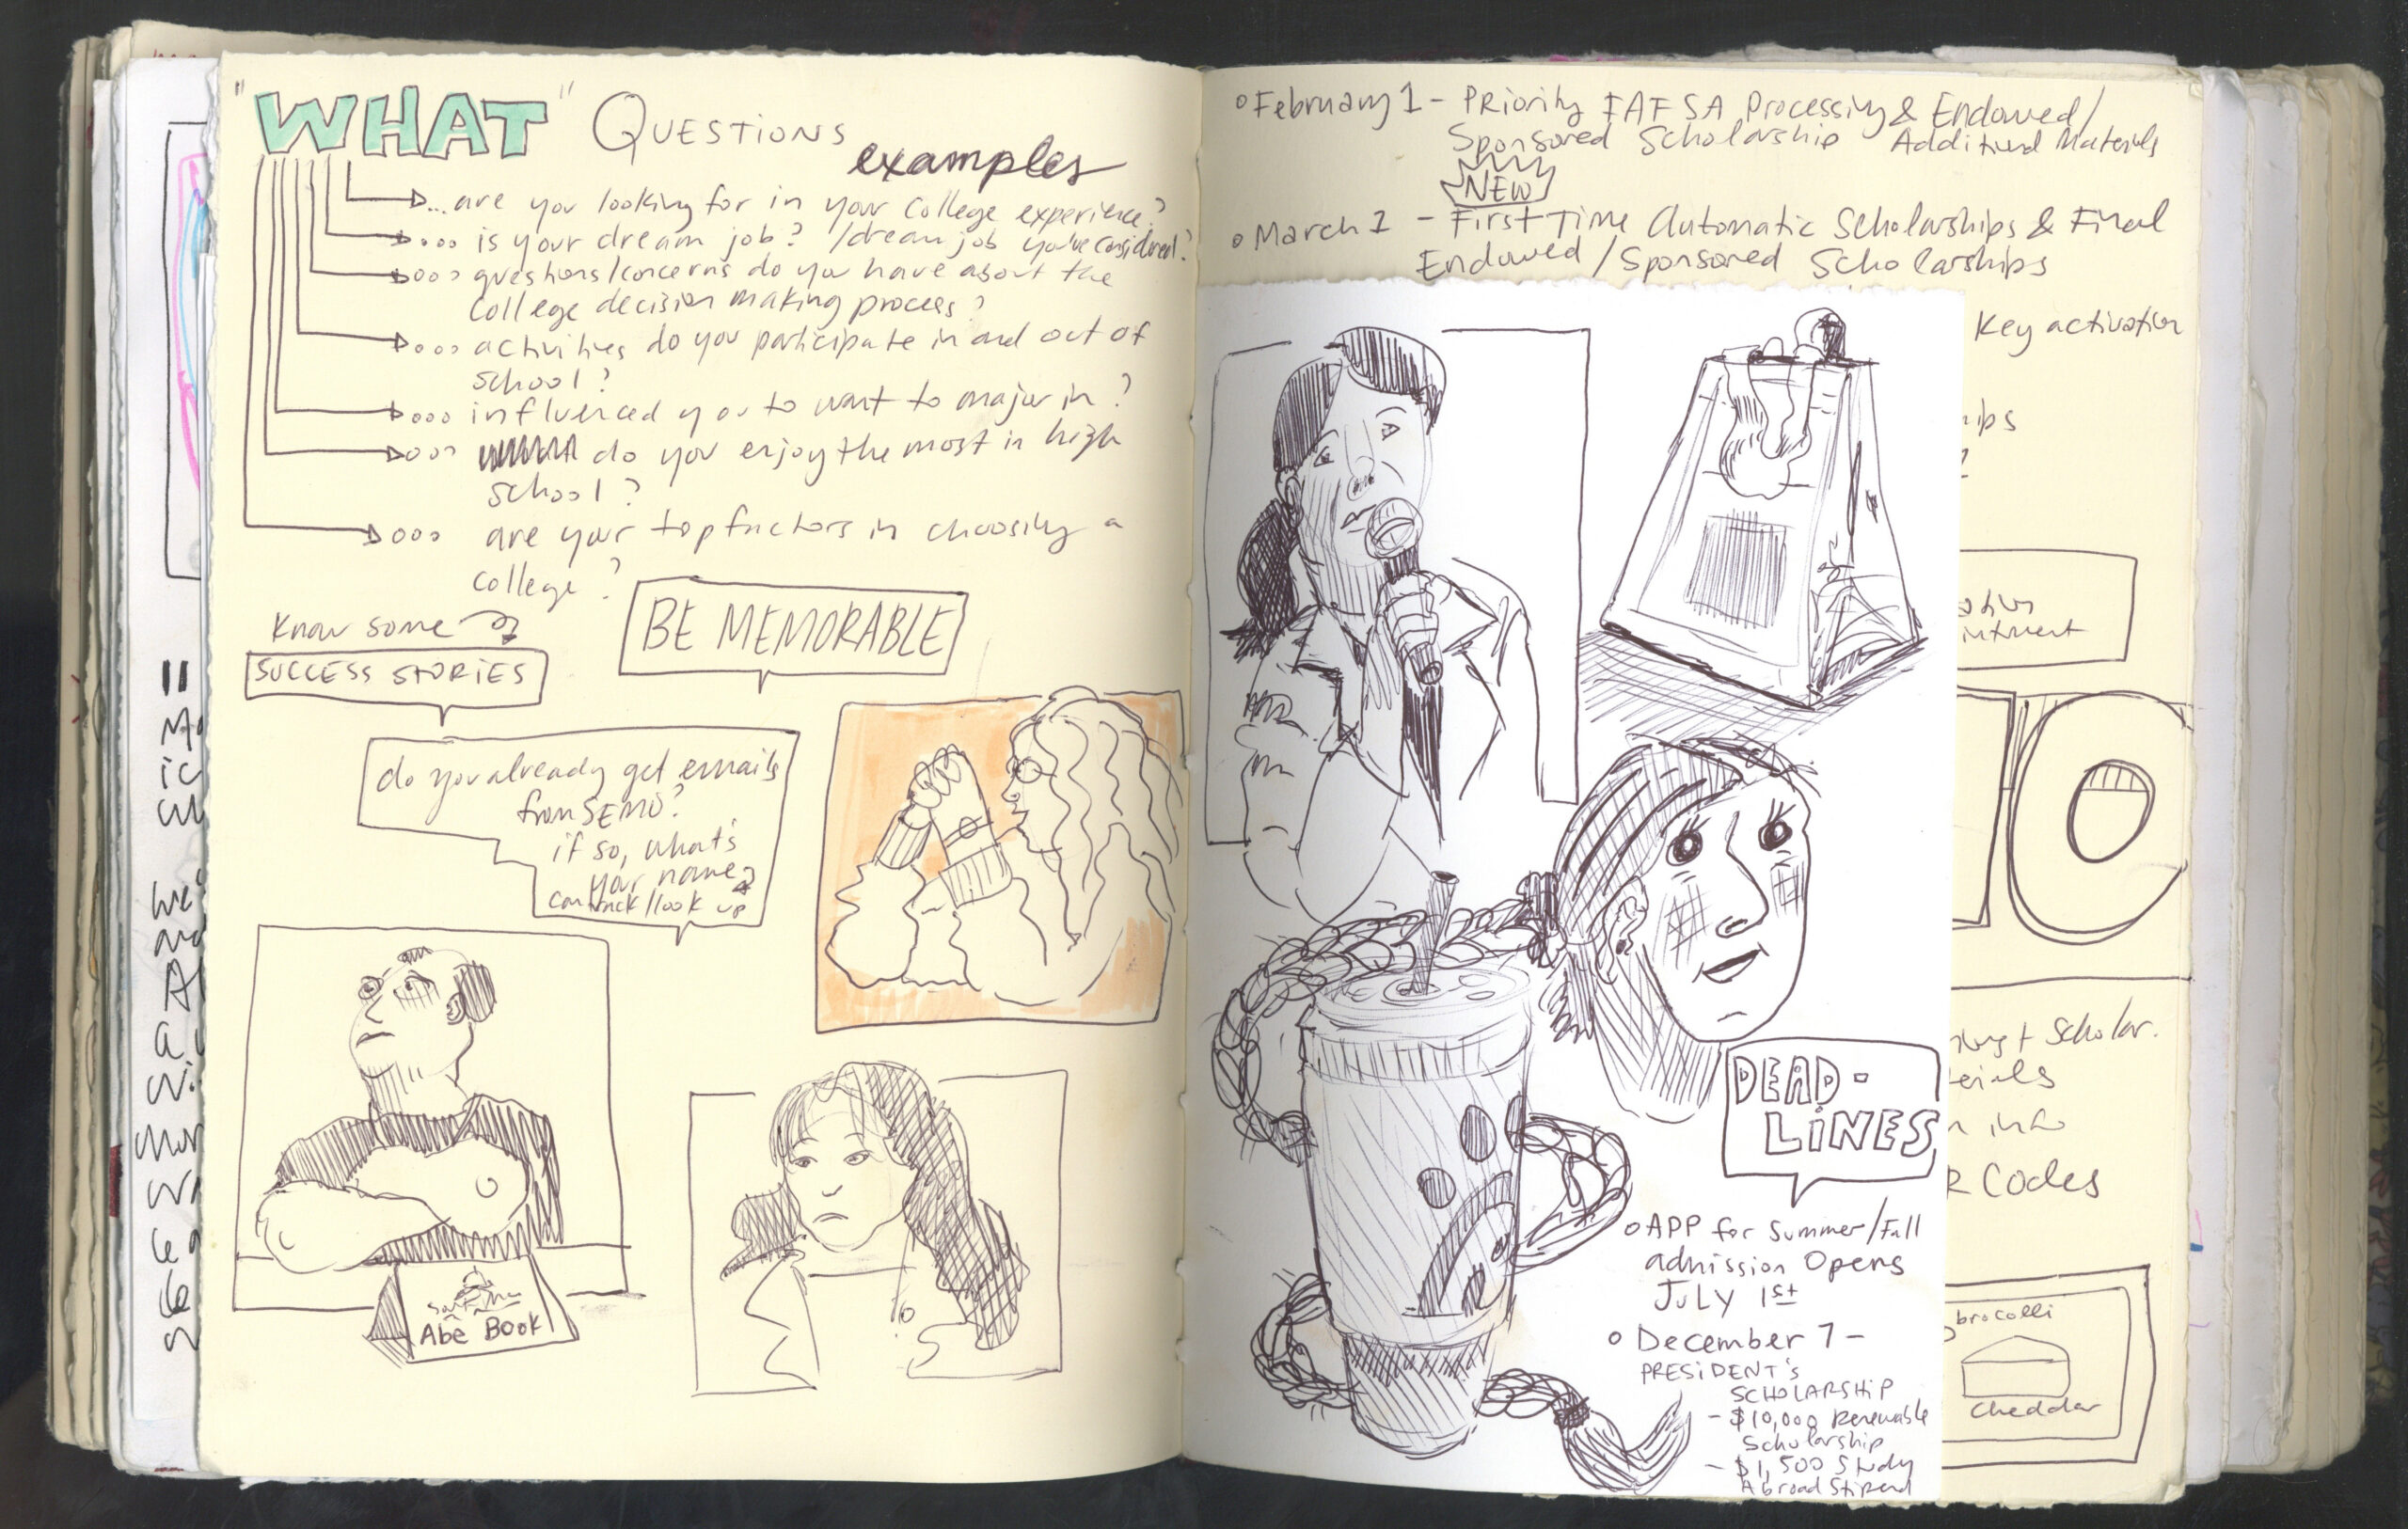 "WHAT" QUESTIONS
examples
... are you looking for in your college experience?
... is your dream job? / dream job you've considered?
... questions/concerns do you have about the
college decision making process?
... activities do you participate in and out of
school?
... influenced you to want to major in?
... do you enjoy the most in high
school?
... are your top factors in choosing a
college?
Know some
SUCCESS STORIES
BE MEMORABLE
do you already get emails
from SEMO?
if so, what's
your name?
can track/look up
Abe Book
February 1 - Priority FAFSA Processing & Endowed/
Sponsored Scholarship Additional Materials
NEW
March 1 - First Time Automatic Scholarships & Final
Endowed/Sponsored Scholarships
Key activation
DEAD-
LINES
APP for Summer/Fall
admission Opens
JULY 1st
December 7 -
PRESIDENT'S
SCHOLARSHIP
- $10,000 Renewable
Scholarship
- $1,500 Study
Abroad Stipend
C
Scholar.
info
Codes
brocolli
cheddar